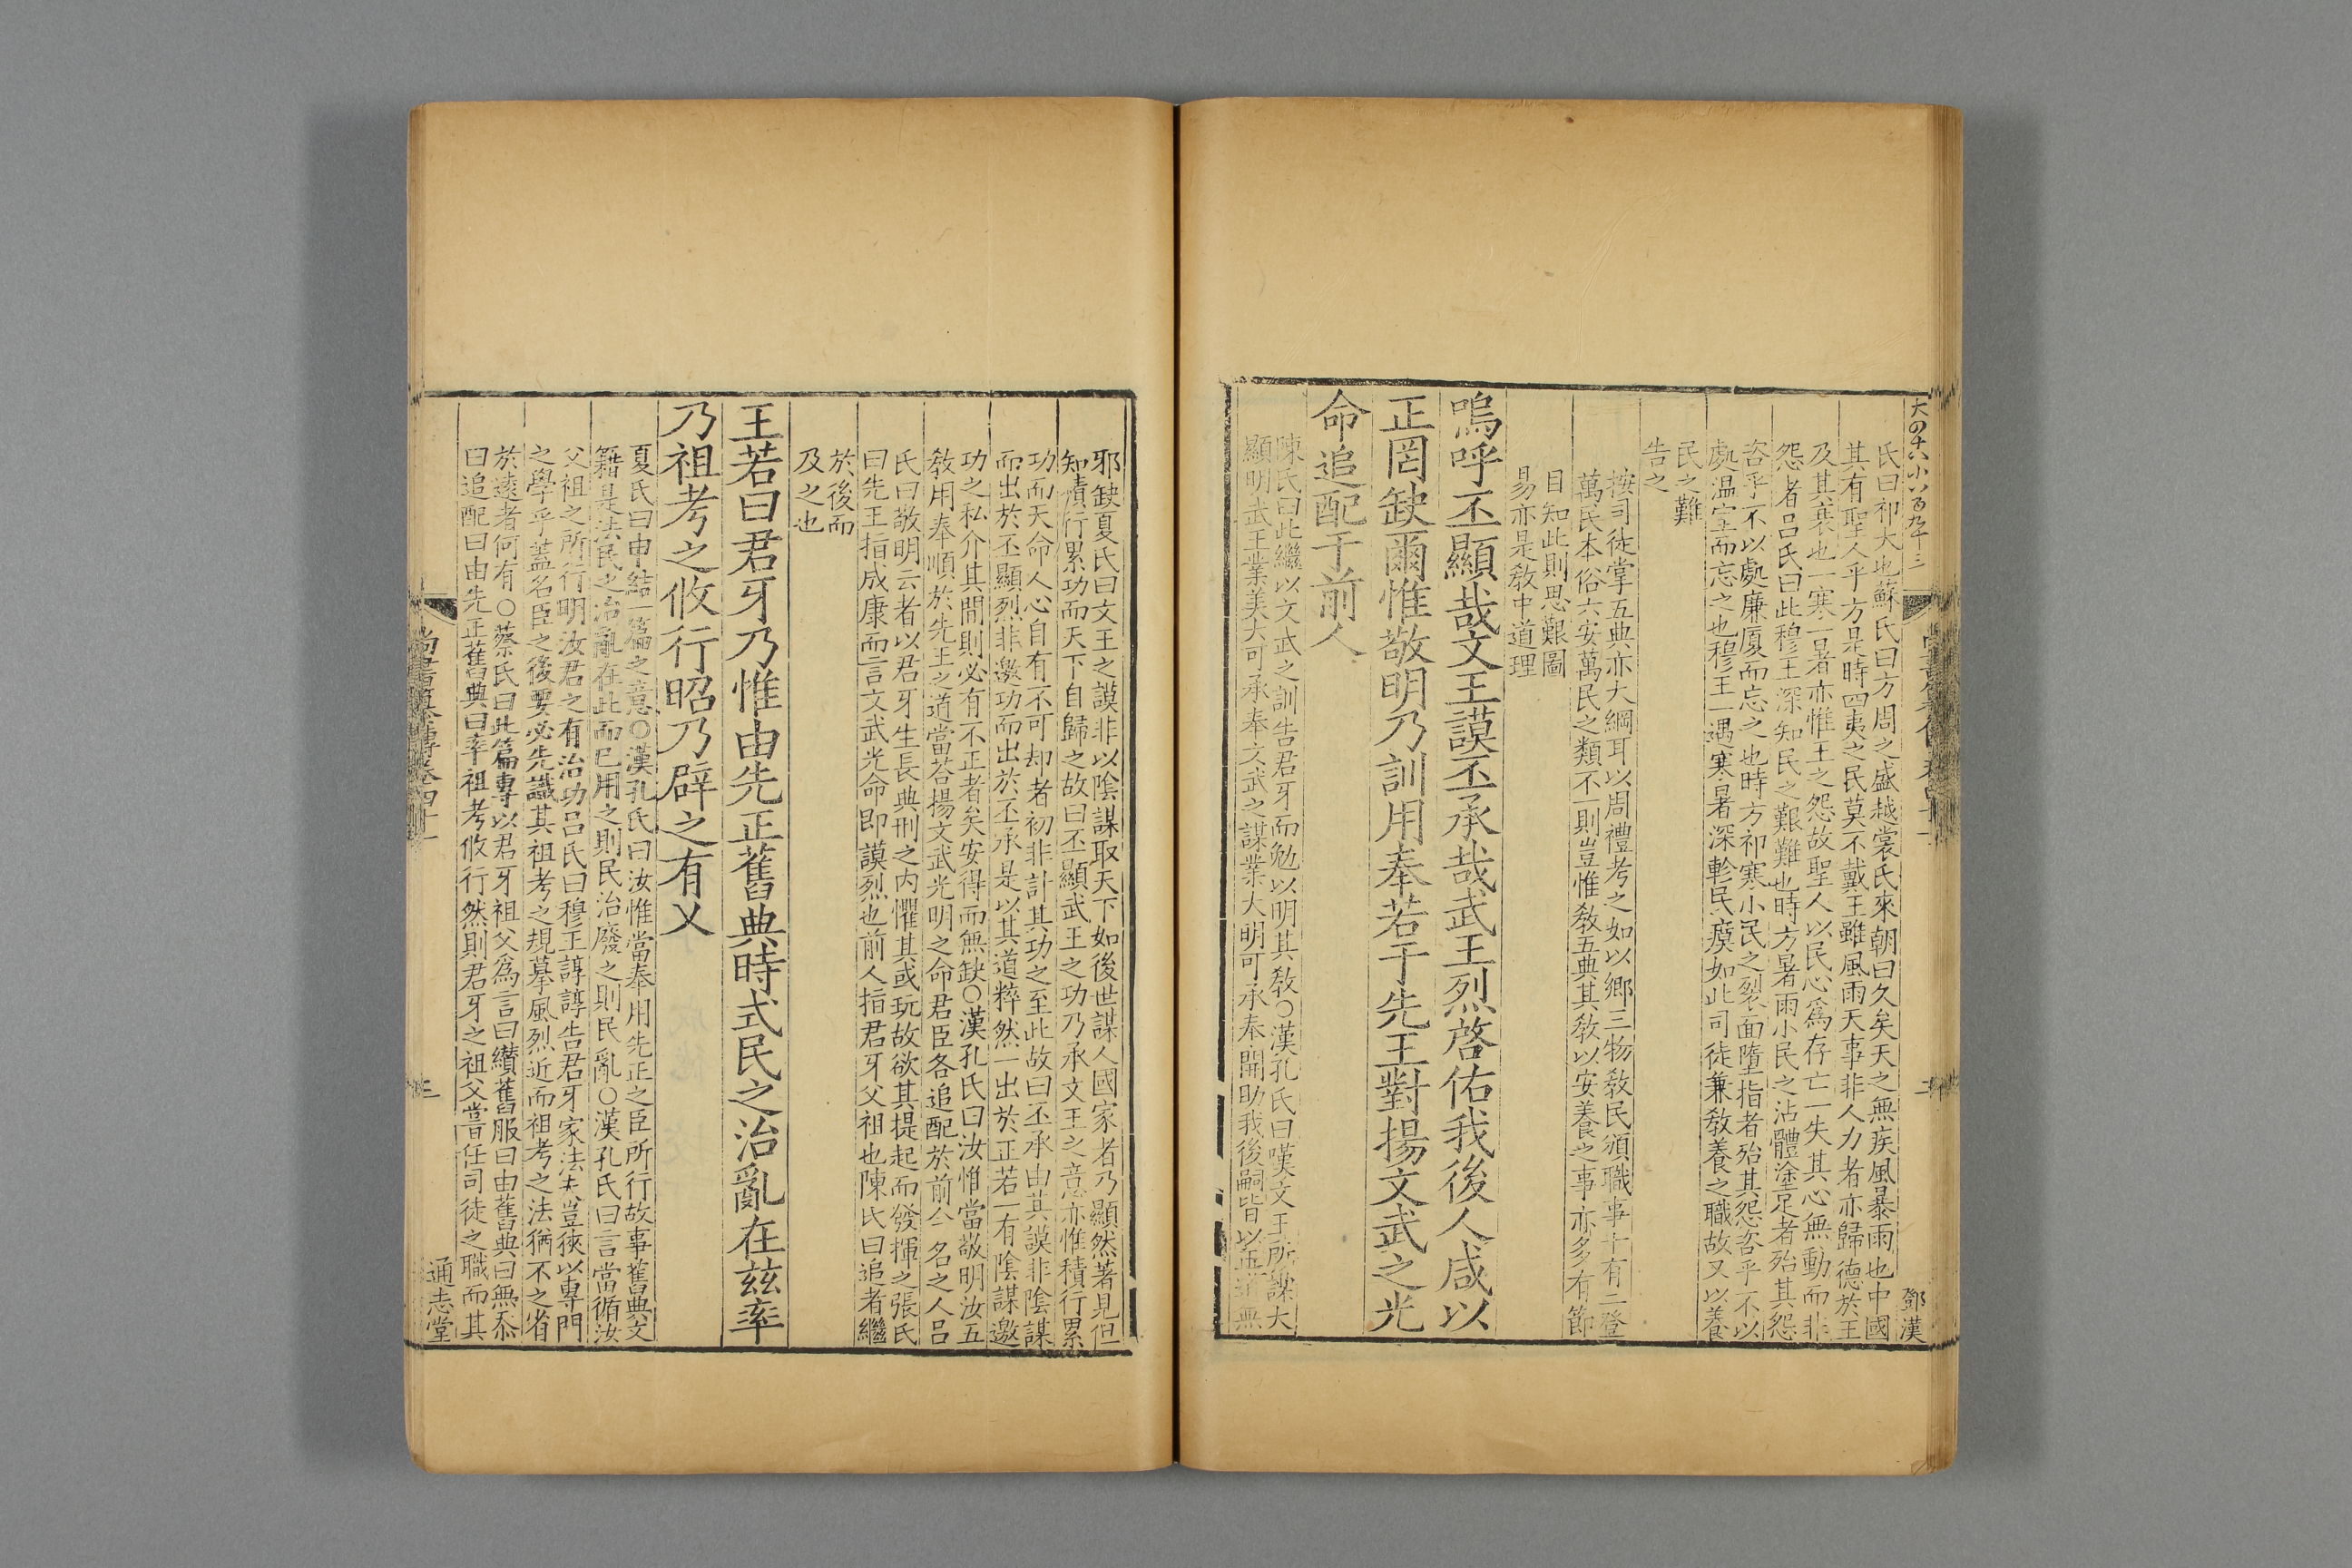 大四十六小八百九十三
鄧漢
氏曰祁大也蘇氏曰方周之盛越裳氏來朝曰久矣天之無疾風暴雨也中國
其有聖人乎方是時四夷之民莫不戴王雖風雨天事非人力者亦歸德於王
及其衰也一寒一暑亦惟王之怨故聖人以民心爲存亡一失其心無動而非
怨者呂氏曰此穆王深知民之艱難也時方暑雨小民之沾體塗足者殆其怨
咨乎不以處廉厦而忘之也時方祁寒小民之裂面墮指者殆其怨咨乎不以
處温室而忘之也穆王一遇寒暑深軫民瘼如此司徒兼敎養之職故又以養
民之難
告之
按司徒掌五典亦大綱耳以周禮考之如以鄉三物敎民頒職事十有二登
萬民本俗六安萬民之類不一則豈惟敎五典其敎以安養之事亦多有節
目知此則思艱圖
易亦是敎中道理
嗚呼丕顯哉文王謨丕承哉武王烈啓佑我後人咸以
正罔缺爾惟敬明乃訓用奉若于先王對揚文武之光
命追配于前人
陳氏曰此繼以文武之訓告君牙而勉以明其敎○漢孔氏曰嘆文王所謀大
顯明武王業美大可承奉文武之謀業大明可承奉開助我後嗣皆以正道無
邪缺夏氏曰文王之謨非以陰謀取天下如後世謀人國家者乃顯然著見但
知積行累功而天下自歸之故曰丕顯武王之功乃承文王之意亦惟積行累
功而天命人心自有不可却者初非計其功之至此故曰丕承由其謨非陰謀
而出於丕顯烈非邀功而出於丕承是以其道粹然一出於正若一有陰謀邀
功之私介其間則必有不正者矣安得而無缺○漢孔氏曰汝惟當敬明汝五
敎用奉順於先王之道當荅揚文武光明之命君臣各追配於前令名之人呂
氏曰敬明云者以君牙生長典刑之内懼其或玩故欲其提起而發揮之張氏
曰先王指成康而言文武光命即謨烈也前人指君牙父祖也陳氏曰追者繼
於後而
及之也
王若曰君牙乃惟由先正舊典時式民之治亂在兹率
乃祖考之攸行昭乃辟之有乂
夏氏曰申結一篇之意○漢孔氏曰汝惟當奉用先正之臣所行故事舊典文
籍是法民之治亂在此而已用之則民治廢之則民亂○漢孔氏曰言當循汝
父祖之所行明汝君之有治功呂氏曰穆王諄諄告君牙家法夫豈狹以專門
之學乎蓋名臣之後要必先識其祖考之規摹風烈近而祖考之法猶不之省
於遠者何有○蔡氏曰此篇專以君牙祖父爲言曰纘舊服曰由舊典曰無忝
曰追配曰由先正舊典曰率祖考攸行然則君牙之祖父嘗任司徒之職而其
尚書纂傳卷四十一
三
通志堂